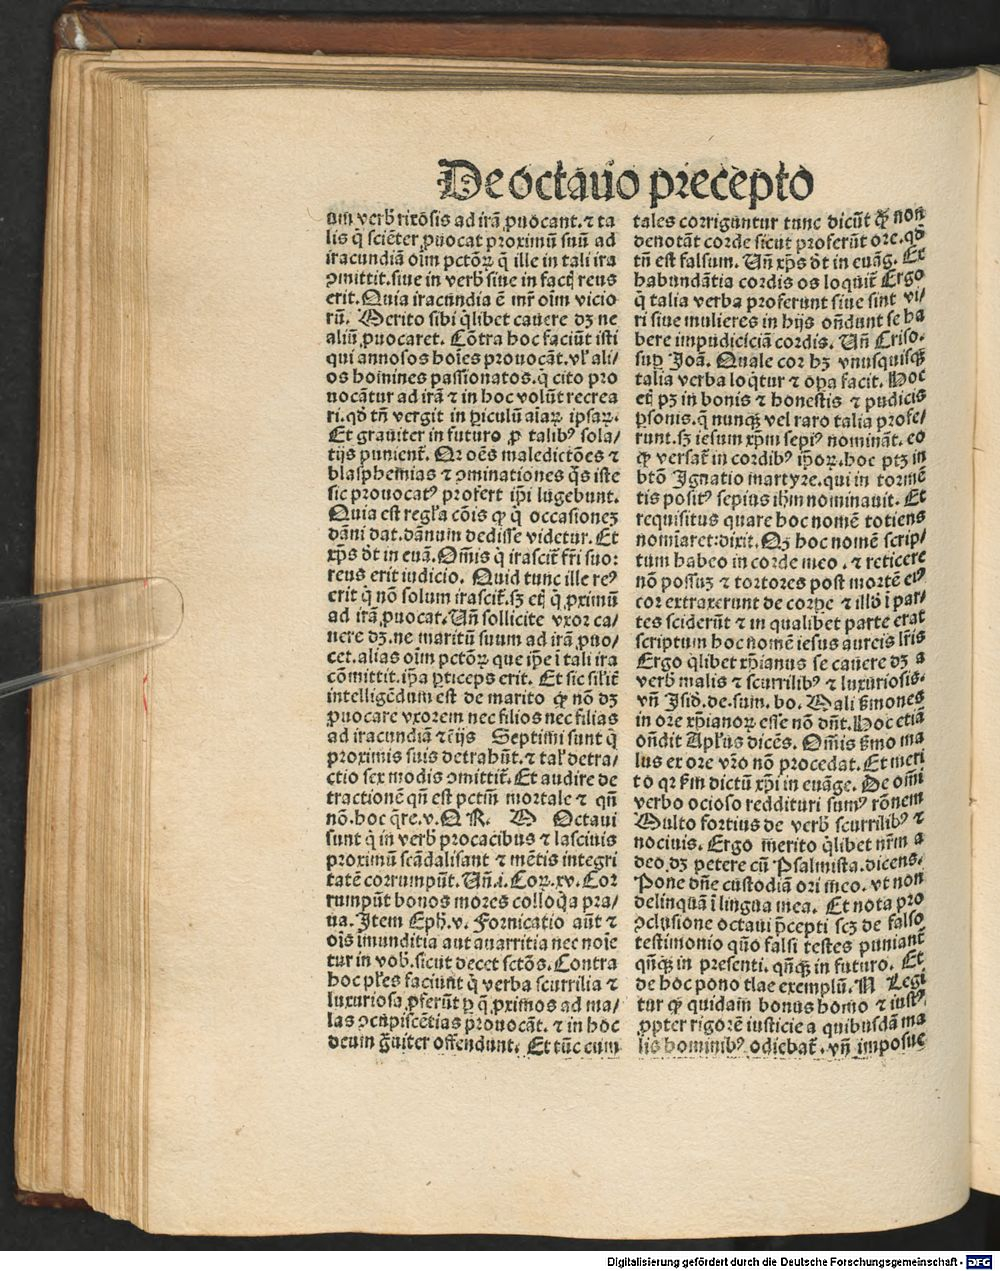 De octauo precepto
um verb̃ rixōsis ad irã ꝓuocant. ⁊ ta
lis q̃ sciẽter ꝓuocat proximũ suũ ad
iracundiã oĩm pctõꝝ q̃ ille in tali ira
ꝯmittit. siue in verb̃ siue in factꝭ reus
erit. Quia iracundia ẽ mr̃ oĩm vicio
rũ. Merito sibi q̃libet cauere dʒ ne
aliũ ꝓuocaret. Cõtra hoc faciũt isti
qui annosos hoĩes prouocãt. vl̕ ali/
os homines passionatos. q̃ cito pro
uocãtur ad irã ⁊ in hoc volũt recrea
ri. qd̕ tñ vergit in ꝑiculũ aĩaꝝ ipsaꝝ.
Et grauiter in futuro ꝓ talibꝰ sola/
tijs punient̃. Qꝛ oẽs maledictões ⁊
blasphemias ⁊ ꝯminationes q̃s iste
sic prouocatꝰ profert ip̃i lugebunt.
Quia est regl̕a cõis ꝙ q̃ occasioneʒ
dãni dat. dãnum dedisse videtur. Et
xp̃s dt̕ in euã. Om̃is q̃ irascit̃ fr̃i suo:
reus erit iudicio. Quid tunc ille reꝰ
erit q̃ nõ solum irascit̃. sʒ etꝭ q̃ ꝓximũ
ad irã ꝓuocat. Uñ sollicite vxor ca/
uere dʒ. ne maritũ suum ad irã ꝓuo/
cet. alias oĩm pctõꝝ que ip̃e ĩ tali ira
cõmittit. ip̃a ꝑticeps erit. Et sic sil̕it̃
intelligẽdum est de marito ꝙ nõ dʒ
ꝓuocare vxorem nec filios nec filias
ad iracundiã ⁊ẽijs Septimi sunt q̃
proximis suis detrahũt. ⁊ tal̕ detra/
ctio sex modis ꝯmittit̃. Et audire de
tractionẽ qñ est pctm̃ mortale ⁊ qñ
nõ. hoc q̃re. v. Q R. M Octaui
sunt q̃ in verb̃ procacibus ⁊ lasciuis
proximũ scãdalisant ⁊ mẽtis integri
tatẽ corrumpũt. Uñ. i. Coꝝ. xv. Cor
rumpũt bonos mores colloq̃a pra/
ua. Item Eph̃. v. Fornicatio aũt ⁊
oĩs imunditia aut auarritia nec noĩe
tur in vob̃. sicut decet sctõs. Contra
hoc pl̕es faciunt q̃ verba scurrilia ⁊
luxuriosa ꝓferũt ꝑ q̃ ꝓximos ad ma/
las ꝯcupiscẽtias prouocãt. ⁊ in hoc
deum g̃uiter offendunt. Et tũc cum
tales corriguntur tunc dicũt ꝙ non
denotãt corde sicut proferũt ore. qd̕
tñ est falsum. Uñ xp̃s dt̕ in euãg. Ex
habundãtia cordis os loquit̃ Ergo
q̃ talia verba proferunt siue sint vi/
ri siue mulieres in hijs oñdunt se ha
bere impudiciciã cordis. Uñ Criso.
suꝑ Joã. Quale cor hʒ vnusquisqꝫ
talia verba loq̃tur ⁊ oꝑa facit. Hoc
etꝭ pʒ in bonis ⁊ honestis ⁊ pudicis
ꝑsonis. q̃ nunqꝫ vel raro talia profe/
runt. sʒ iesum xp̃m sepiꝰ nominãt. eo
ꝙ versat̃ in cordibꝰ ip̃oꝝ. hoc ptʒ in
btõ Ignatio martyre. qui in tormẽ
tis positꝰ sepius ih̃m nominauit. Et
requisitus quare hoc nomẽ totiens
nomiaret: dixit. Qʒ hoc nomẽ scrip/
tum habeo in corde meo. ⁊ reticere
nõ possuʒ ⁊ tortores post mortẽ eiꝰ
cor extraxerunt de corꝑe ⁊ illd̕ ĩ par/
tes sciderũt ⁊ in qualibet parte erat
scriptum hoc nomẽ iesus aureis lr̃is
Ergo q̃libet xp̃ianus se cauere dʒ a
verb̃ malis ⁊ scurrilibꝰ ⁊ luxuriosis.
vñ Isid̕. de. sum. bo. Mali s̃mones
in ore xp̃ianoꝝ esse nõ dñt. Hoc etiã
oñdit Apl̕us dicẽs. Om̃is s̃mo ma
lus ex ore vr̃o nõ procedat. Et meri
to qꝛ s̃m dictũ xp̃i in euãge. De om̃i
verbo ocioso reddituri sumꝰ rõnem
Multo fortius de verb̃ scurrilibꝰ ⁊
nociuis. Ergo merito q̃libet nr̃m a
deo. dʒ petere cũ Psalmista. dicens.
Pone dñe custodiã ori meo. vt non
delinquã ĩ lingua mea. Et nota pro
ꝯclusione octaui p̃cepti scʒ de falso
testimonio quõ falsi testes puniant̃
qñqꝫ in presenti. qñqꝫ in futuro. Et
de hoc pono tlae exemplũ. N Legi
tur ꝙ quidam bonus homo ⁊ iustꝰ.
ꝓpter rigorẽ iusticie a quibusdã ma
lis hominibꝰ odiebat̃. vñ imposue
Digitalisierung gefördert durch die Deutsche Forschungsgemeinschaft - DFG